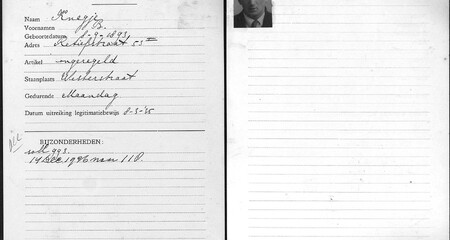 Naam Knegje
Voornamen B.
Geboortedatum 8-9-1893,
Adres Retiefstraat 53
Artikel ongeregeld
Standplaats Westerstraat
Gedurende Maandag
Datum uitreiking legitimatiebewijs 8-3-'35
BIJZONDERHEDEN:
14 Dec 1936 naar 118.